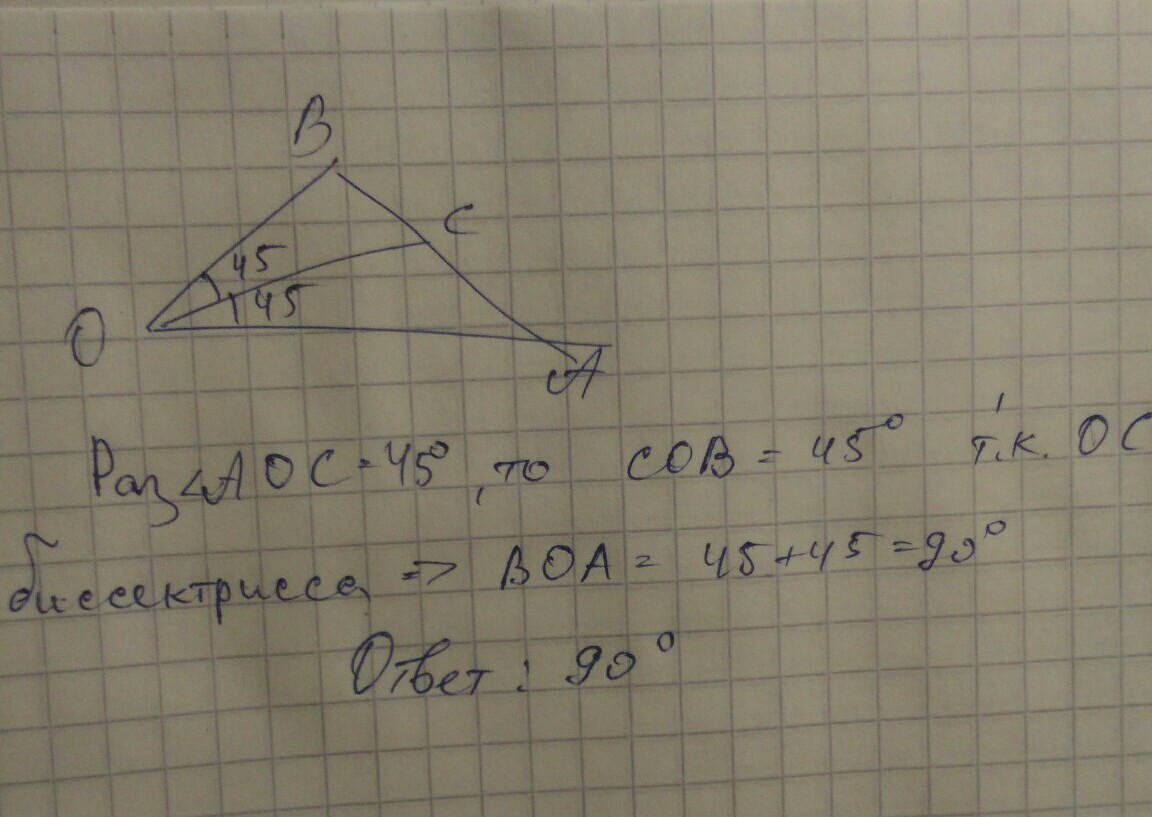 B
C
45
45
O
A
Раз ∠AOC = 45°, то COB = 45° т.к. OC
биссектрисса => BOA = 45+45=90°
Ответ: 90°